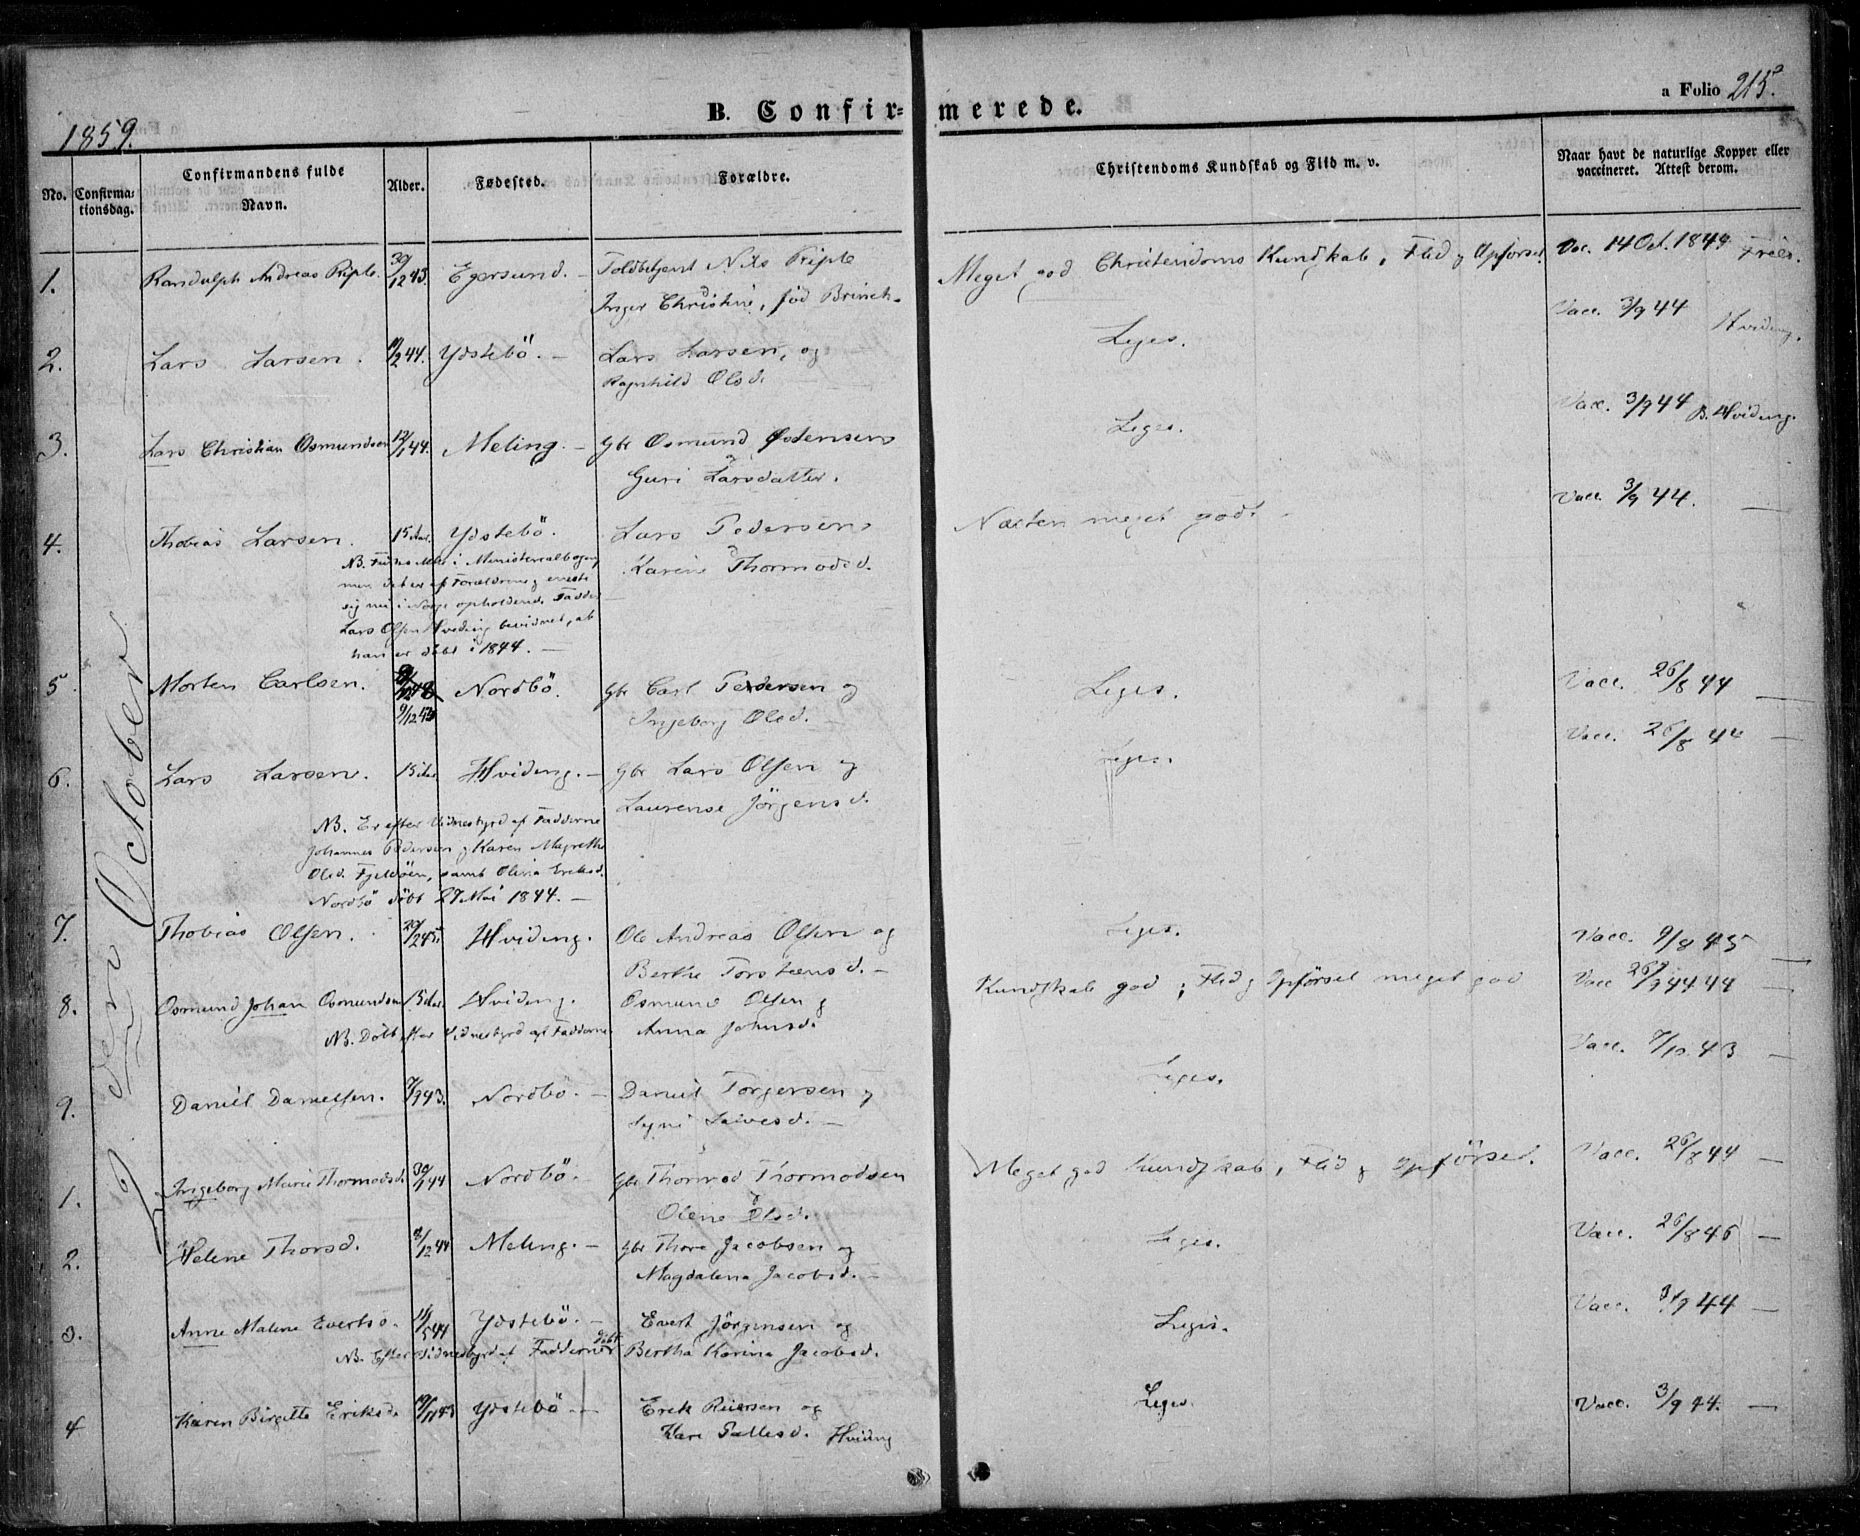 B. Confirmerede.
a Folio 215.
1859.
No.
Confirmationsdag.
Confirmandens fulde Navn.
Alder.
Fødested.
Forældre.
Christendoms Kundskab og Flid m. v.
Naar havt de naturlige Kopper eller vaccineret. Attest derom.
2 den October
1. Randulph Andreas Riple. 30/12 43. Egersund. – Toldbetjent Nils Riple Meget god Christendoms Kundskab, Flid og Opførsel Vac. 14 Oct. 1844
Inger Christine, fød Brinch.
2. Lars Larsen. 44. Ydstebö. – Lars Larsen, og Liges. Vacc. 3/9 44 Hviding.
Ragnhild Olsd.
3. Lars Christian Osmundsen 12/1 44. Meling. – Gbr Osmund Østensen Liges. Vacc. 3/9 44 Hviding.
Guri Larsdatter.
4. Thobias Larsen. 15 Aar. Ydstebö. Lars Pedersen Næsten meget godt – Vacc. 3/9 44. –
Karine Thormodsd.
NB. Findes ikke i Ministerialbogen,
men det er af Forældrene og eneste
sig nu i Norge opholdende Fadder
Lars Olsen Hviding bevidnet, at
han er döbt i 1844. –
5. Morten Carlsen. 9/12 43 Nordbö. Gbr Carl Pedersen og Liges. Vacc. 26/8 44 –
Ingeborg Olsd. –
6. Lars Larsen. 15 Aar Hviding. – Gbr Lars Olsen og Liges. Vacc. 26/8 44 –
Laurense Jörgensd.
NB. Er efter Vidnesbyrd af Fadderne
Johannes Pedersen og Karen Magrethe
Olsd. Fjeldöen, samt Olina Eriksd.
Nordbö döbt 27 Mai 1844. –
7. Thobias Olsen. 20/2 45. Hviding. Ole Andreas Olsen og Liges. Vacc. 9/8 45 –
Berthe Torstensd. –
8. Osmund Johan Osmundsen 15 Aar. Hviding. Osmund Olsen og Kundskab god; Flid og Opförsel meget god Vacc 44 –
NB. Döbt efter Vidnesbyrd af Fadderne Anna Johnsd.
9. Daniel Danielsen. 7/9 43. Nordbö. – Daniel Torgersen og Liges. Vacc. 43 –
Salvesd. –
1. Ingeborg Marie Thormodsd. 30/1 44 Nordbö. – Gbr Thormod Thormodsen Meget god Kundskab, Flid og Opförsel. Vacc. 26/8 44 –
Olene Olsd.
2. Helene Thorsd. 12 44 Meling. – Gbr Thore Jacobsen og Liges. Vacc. 26/8 46 –
Magdalena Jacobsd. –
3. Anne Malene Evertsd. 5 44 Ydstebö. – Evert Jörgensen og Liges. Vacc. 3/9 44 –
NB. Efter Vidnesbyrd af Fadderne döbt Bertha Karina Jacobsd.
4 Karen Birgitte Eriksd. 43 Ydstebö – Erik Reiersen og Liges. Vacc. 3/9 44. –
Kari Pallesd. Hviding